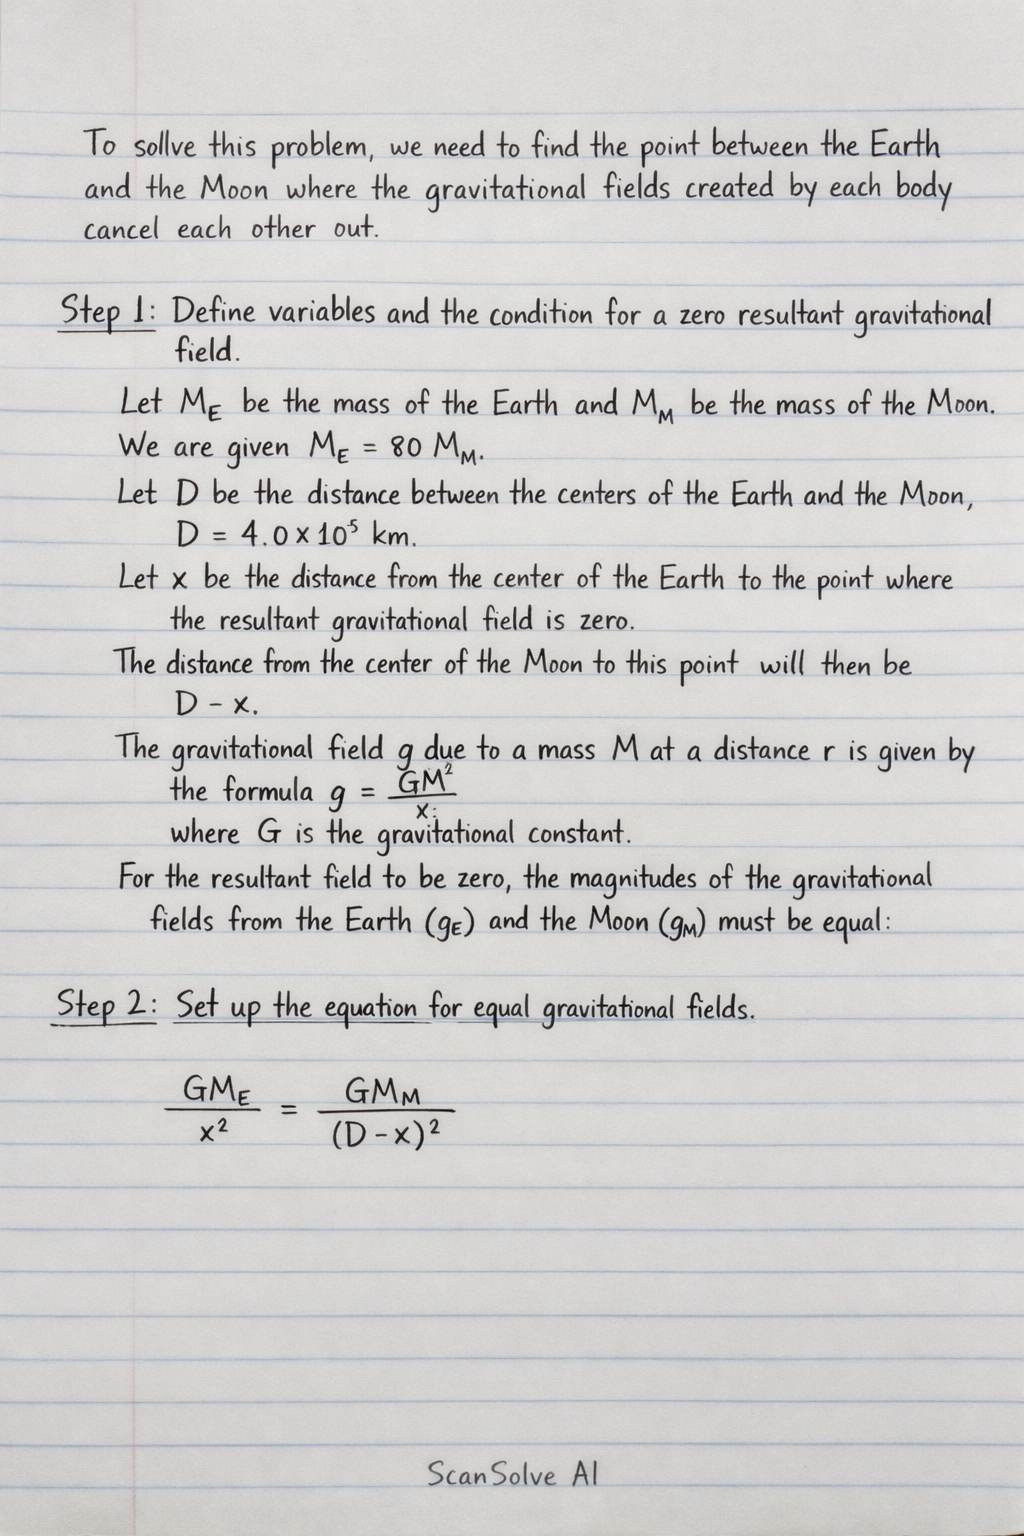 To sollve this problem, we need to find the point between the Earth
and the Moon where the gravitational fields created by each body
cancel each other out.
Step 1: Define variables and the condition for a zero resultant gravitational
field.
Let M_E be the mass of the Earth and M_M be the mass of the Moon.
We are given M_E = 80 M_M.
Let D be the distance between the centers of the Earth and the Moon,
D = 4.0 × 10⁵ km.
Let x be the distance from the center of the Earth to the point where
the resultant gravitational field is zero.
The distance from the center of the Moon to this point will then be
D - x.
The gravitational field g due to a mass M at a distance r is given by
the formula g = GM²/x.
where G is the gravitational constant.
For the resultant field to be zero, the magnitudes of the gravitational
fields from the Earth (g_E) and the Moon (g_M) must be equal:
Step 2: Set up the equation for equal gravitational fields.
GM_E / x² = GM_M / (D - x)²
ScanSolve AI